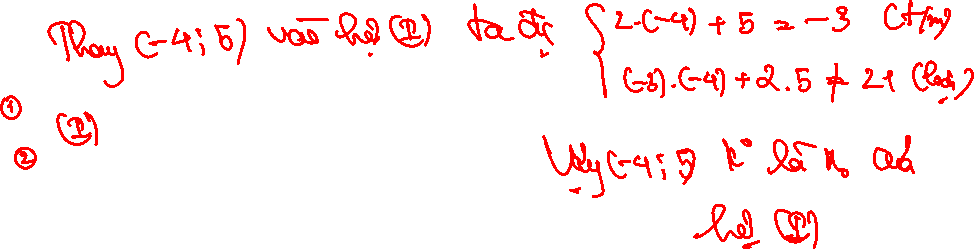 Thay (-4; 5) vào hệ (I) ta đc { 2.(-4) + 5 = -3 (t/m)
(-3).(-4) + 2.5 ≠ 21 (loại)
①
② (I)
Vậy (-4; 5) k° là n₀ của
hệ (I)